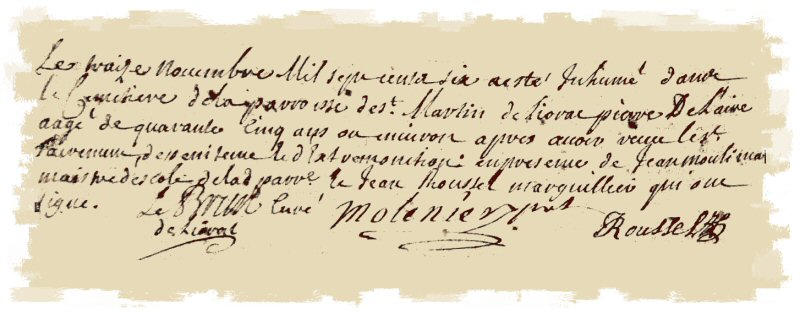 Le traize novembre Mil sept cents six a esté Inhumé dans
le Cimetiere de la parroisse de st. Martin de Lioval pierre De Laire
aagé de quarante Cinq ans ou environ apres avoir receu les st
Sacremens de penitence et d'extremonction en presence de Jean moulinier
maistre d'escole de lad parre. et Jean Roussel marguillier qui ont
signe. Le Brun Curé Molenier prst Roussel
de Lioval